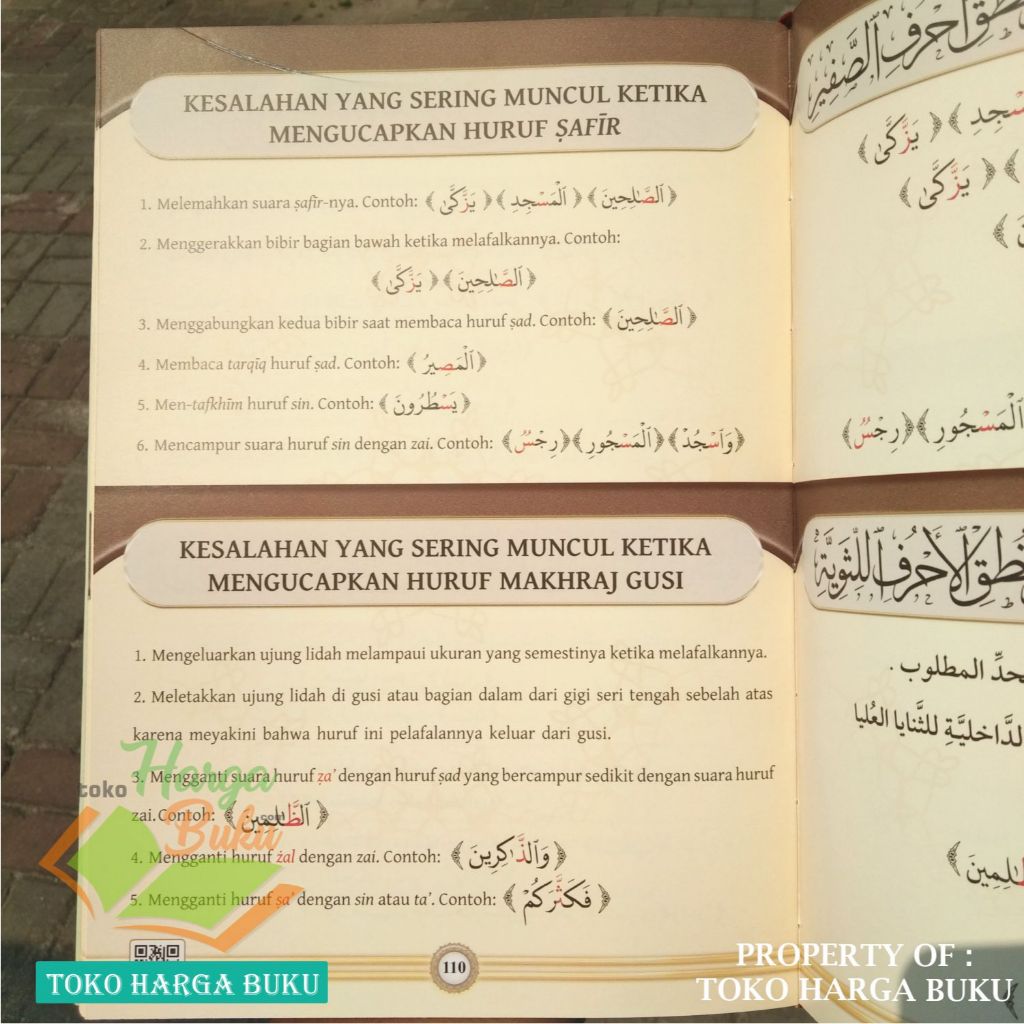 KESALAHAN YANG SERING MUNCUL KETIKA
MENGUCAPKAN HURUF ṢAFĪR
1. Melemahkan suara ṣafīr-nya. Contoh: ﴿ٱلصَّـٰلِحِينَ﴾ ﴿ٱلْمَسْجِدِ﴾ ﴿يَزَّكَّىٰ﴾
2. Menggerakkan bibir bagian bawah ketika melafalkannya. Contoh:
﴿ٱلصَّـٰلِحِينَ﴾ ﴿يَزَّكَّىٰ﴾
3. Menggabungkan kedua bibir saat membaca huruf ṣad. Contoh: ﴿ٱلصَّـٰلِحِينَ﴾
4. Membaca tarqīq huruf ṣad. Contoh: ﴿ٱلْمَصِيرُ﴾
5. Men-tafkhīm huruf sin. Contoh: ﴿يَسْطُرُونَ﴾
6. Mencampur suara huruf sin dengan zai. Contoh: ﴿وَٱسْجُدْ﴾ ﴿ٱلْمَسْجُورِ﴾ ﴿رِجْسٌ﴾
KESALAHAN YANG SERING MUNCUL KETIKA
MENGUCAPKAN HURUF MAKHRAJ GUSI
1. Mengeluarkan ujung lidah melampaui ukuran yang semestinya ketika melafalkannya.
2. Meletakkan ujung lidah di gusi atau bagian dalam dari gigi seri tengah sebelah atas
karena meyakini bahwa huruf ini pelafalannya keluar dari gusi.
3. Mengganti suara huruf ẓa’ dengan huruf ṣad yang bercampur sedikit dengan suara huruf
zai. Contoh: ﴿ٱلظَّـٰلِمِينَ﴾
4. Mengganti huruf żal dengan zai. Contoh: ﴿وَٱلذَّٰكِرِينَ﴾
5. Mengganti huruf ṡa’ dengan sin atau ta’. Contoh: ﴿فَكَثَّرَكُمْ﴾
110
أحرف الصَّفِيرِ
﴿يَزَّكَّىٰ﴾
﴿يَزَّكَّىٰ﴾
﴿ٱلْمَسْجُورِ﴾ ﴿رِجْسٌ﴾
نُطق الأَحْرُفِ اللِّثَوِيَّةِ
المطلوب .
الدَّاخليَّةِ للثَّنايا العُليا
toko Harga Buku .com
TOKO HARGA BUKU
PROPERTY OF :
TOKO HARGA BUKU